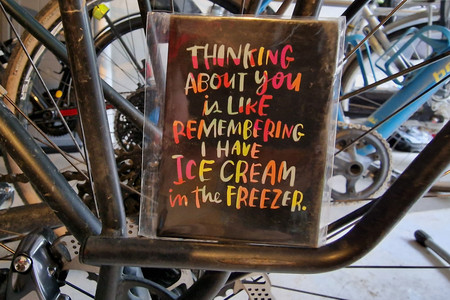 THINKING
ABOUT YOU
is LIKE
REMEMBERING
I HAVE
ICE CREAM
in the FREEZER.